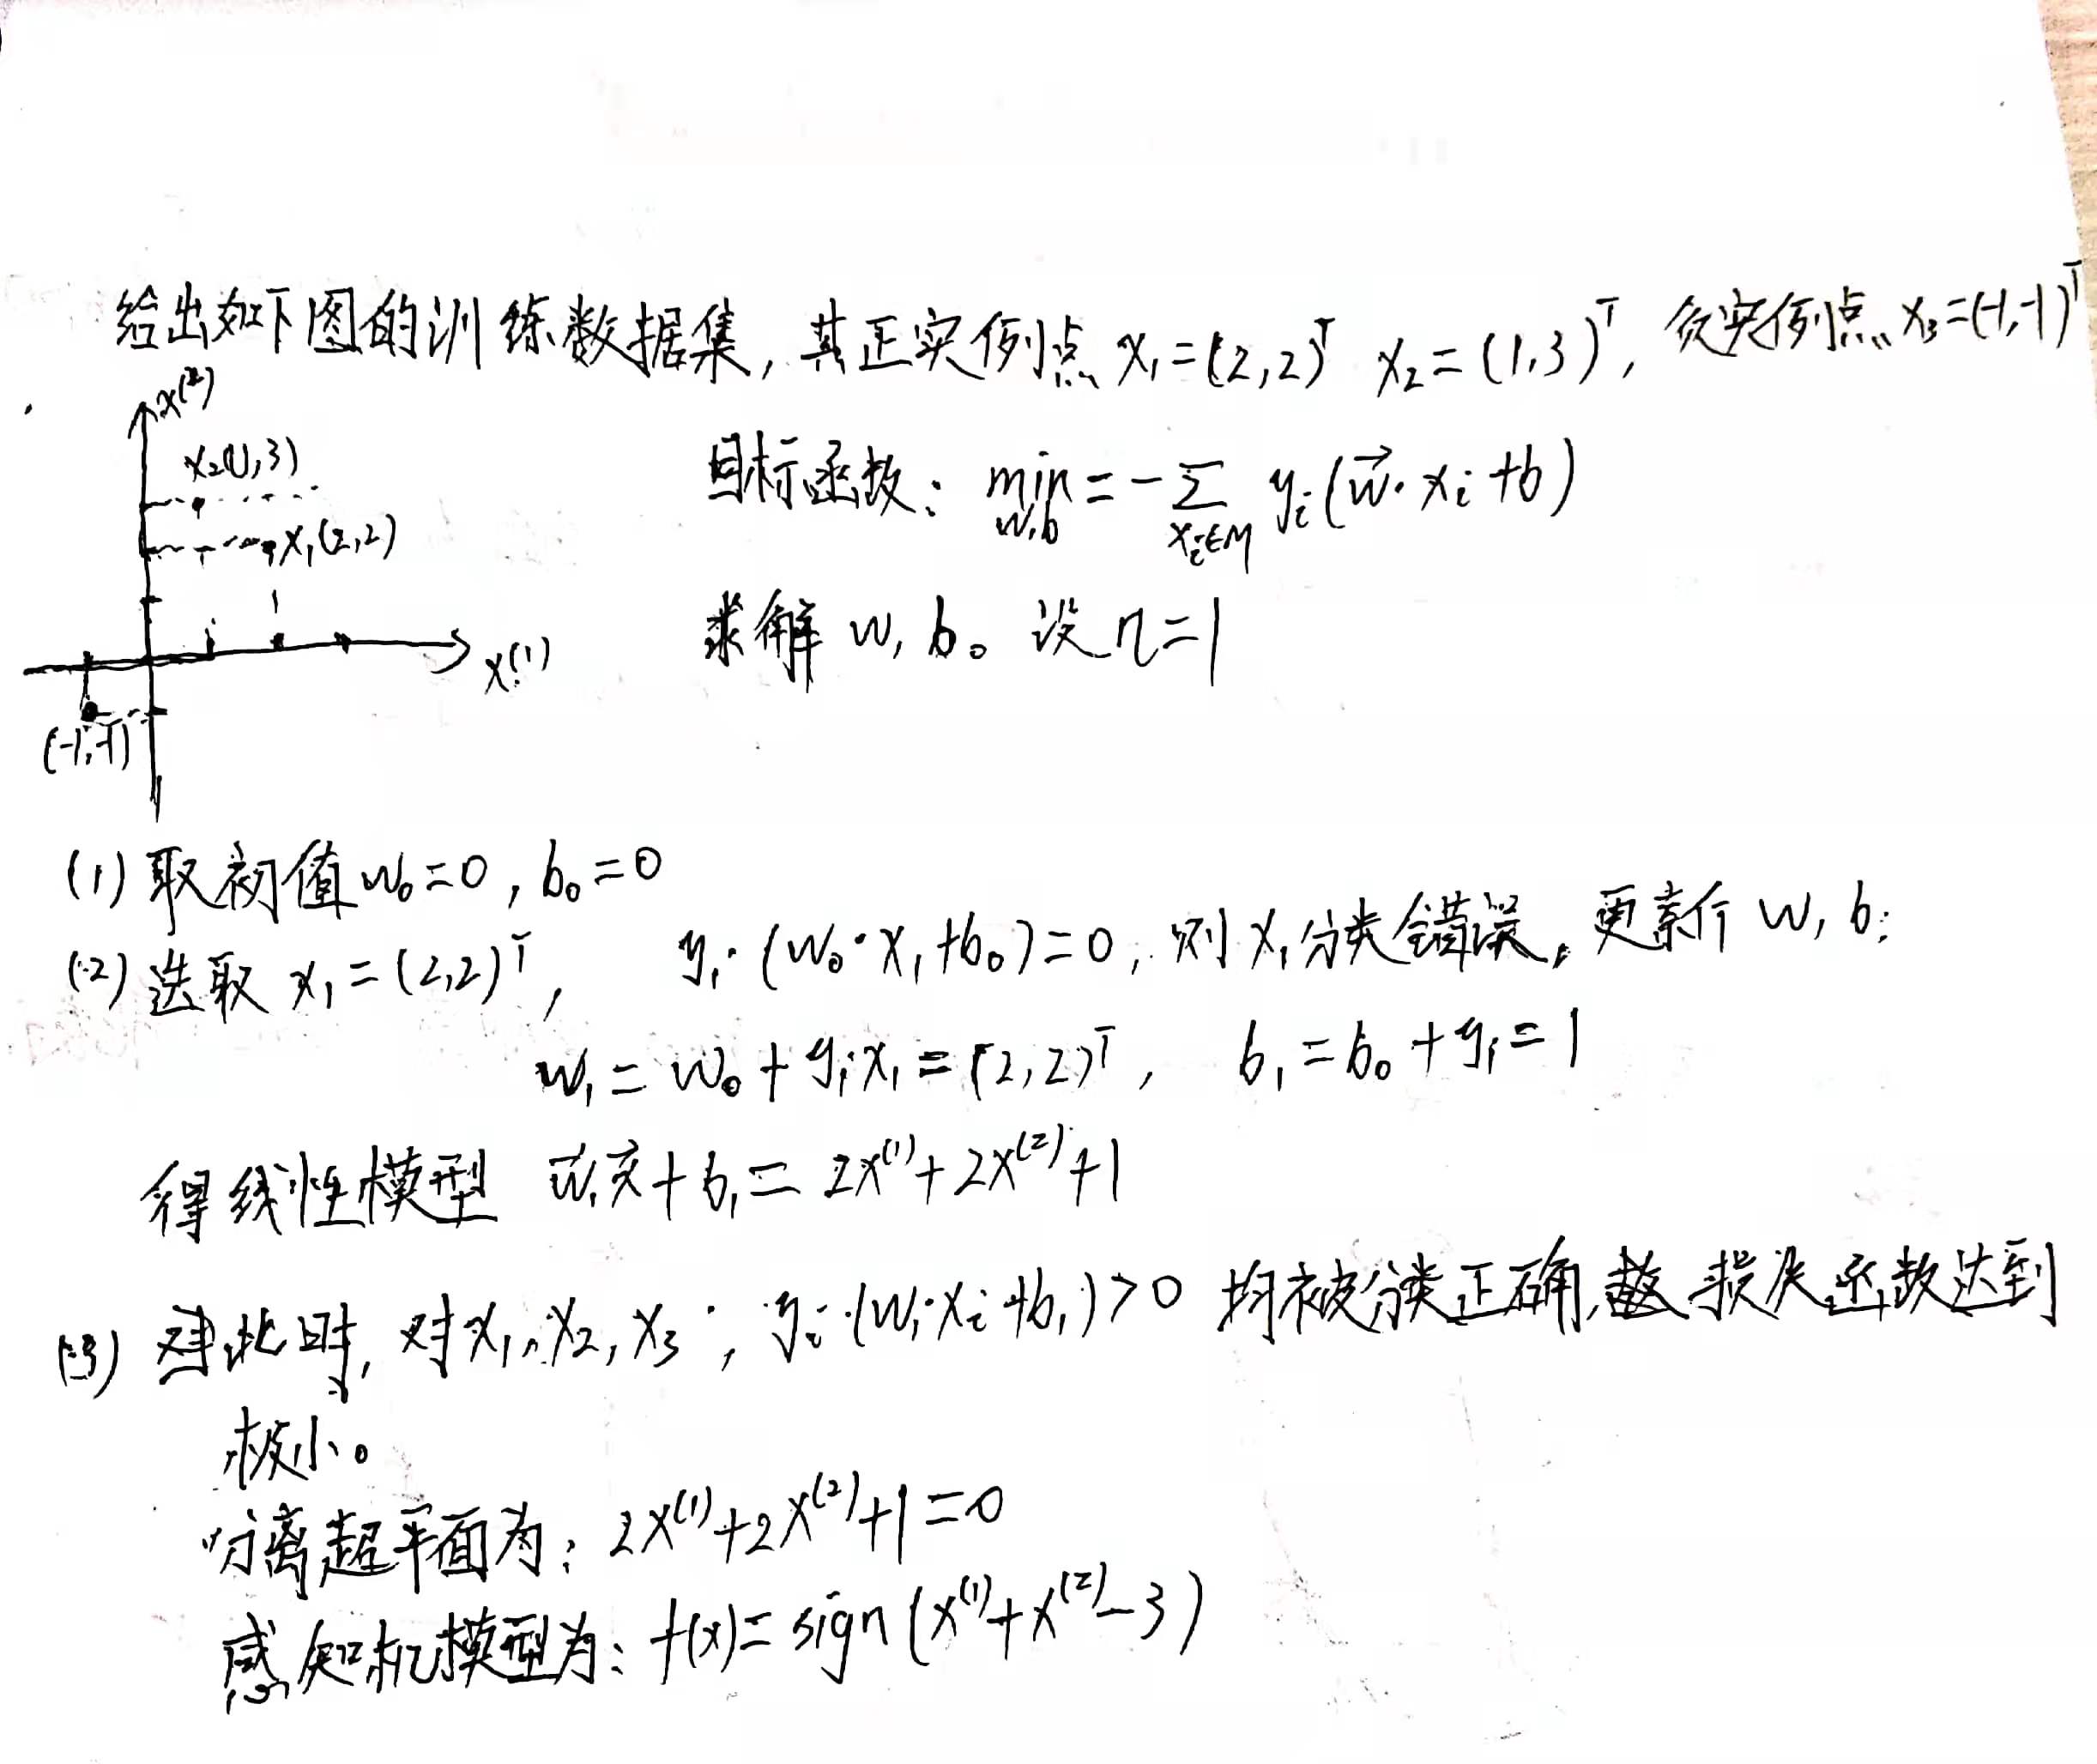 给出如下图的训练数据集, 其正实例点 x₁=(2,2)ᵀ x₂=(1,3)ᵀ, 负实例点 x₃=(-1,-1)ᵀ
x⁽²⁾
x₂(1,3)
x₁(2,2)
x⁽¹⁾
(-1,-1)
目标函数: min w,b = -Σ xᵢ∈M yᵢ(w⃗·xᵢ+b)
求解 w, b。设 η=1
(1) 取初值 w₀=0, b₀=0
(2) 选取 x₁=(2,2)ᵀ, y₁·(w₀·x₁+b₀)=0, 则 x₁ 分类错误, 更新 w, b:
w₁=w₀+y₁x₁=(2,2)ᵀ, b₁=b₀+y₁=1
得线性模型 w⃗₁x⃗+b₁=2x⁽¹⁾+2x⁽²⁾+1
(3) 此时, 对 x₁, x₂, x₃; yᵢ·(w₁·xᵢ+b₁)>0 均被分类正确, 损失函数达到
极小。
分离超平面为: 2x⁽¹⁾+2x⁽²⁾+1=0
感知机模型为: f(x)=sign(x⁽¹⁾+x⁽²⁾-3)